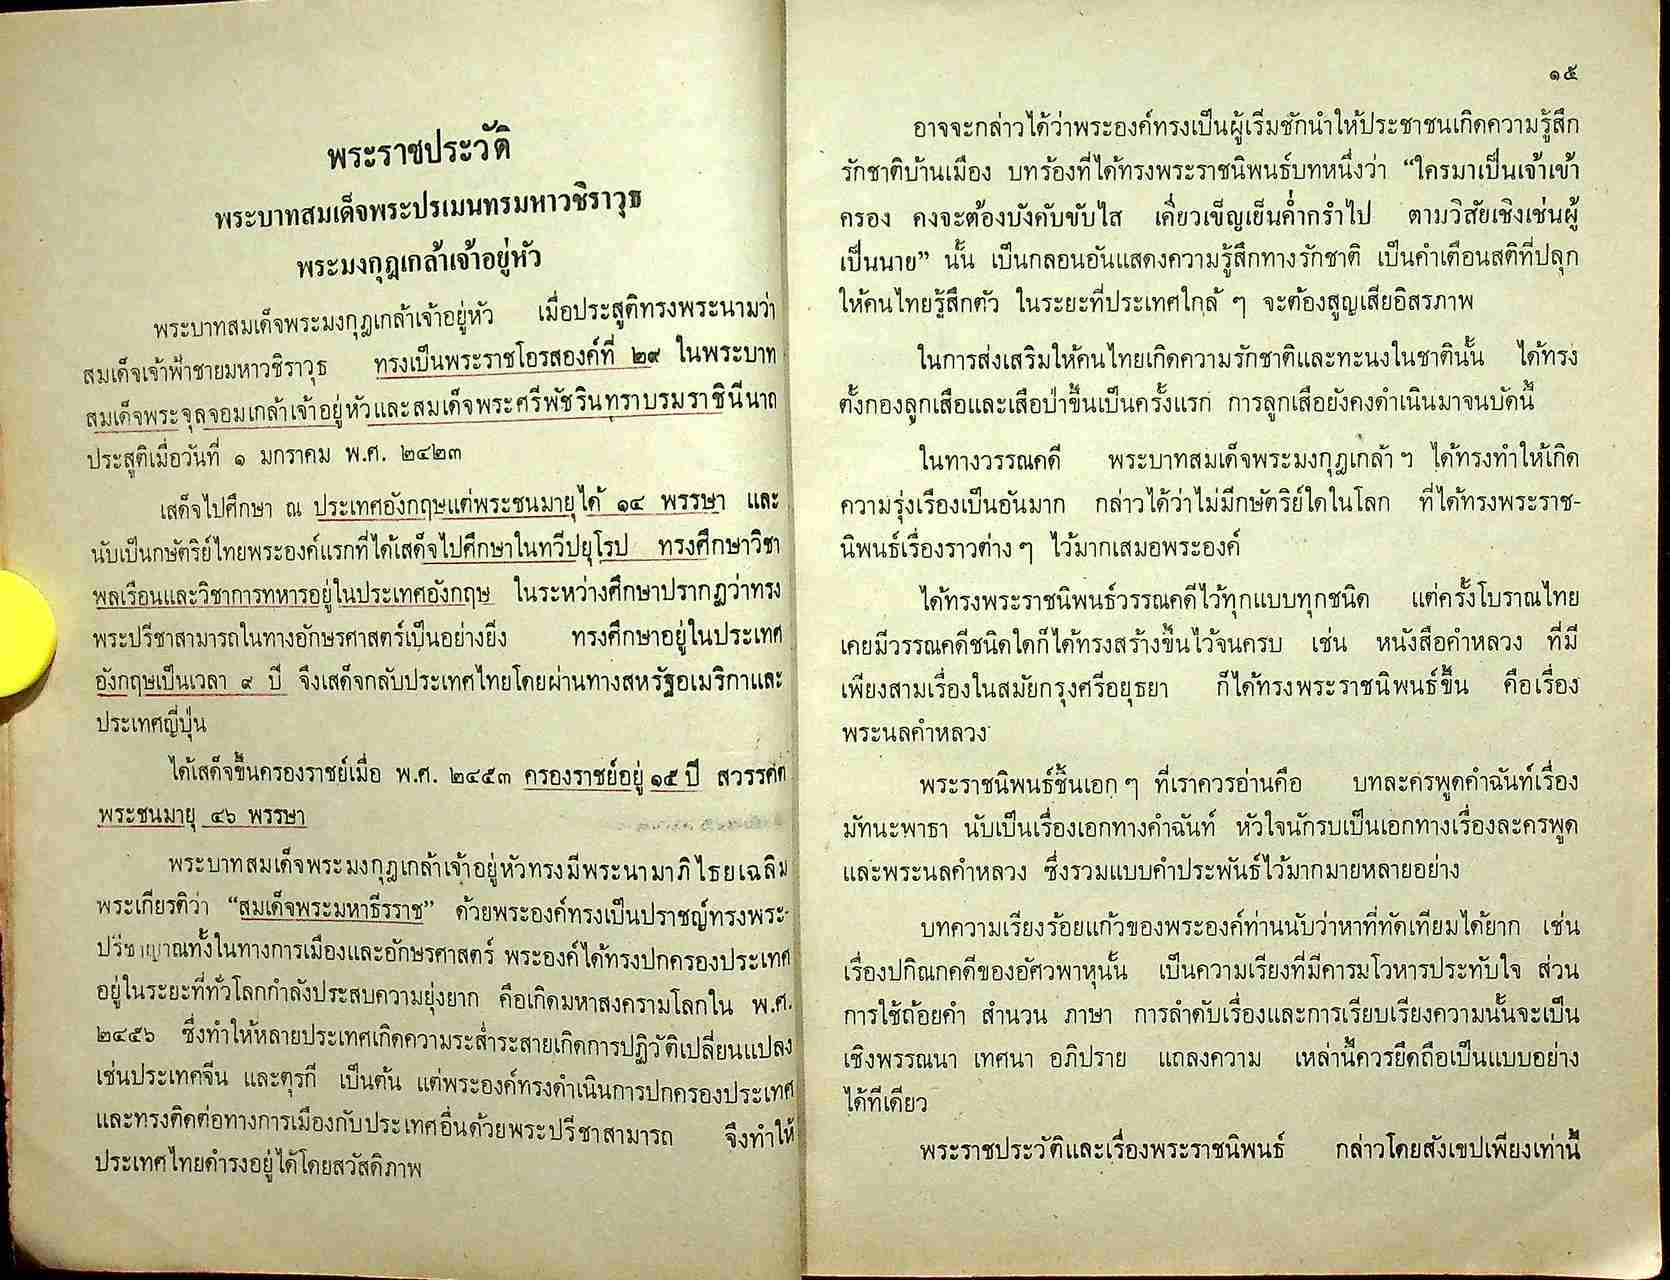 พระราชประวัติ
พระบาทสมเด็จพระปรเมนทรมหาวชิราวุธ
พระมงกุฎเกล้าเจ้าอยู่หัว
พระบาทสมเด็จพระมงกุฎเกล้าเจ้าอยู่หัว เมื่อประสูติทรงพระนามว่า
สมเด็จเจ้าฟ้าชายมหาวชิราวุธ ทรงเป็นพระราชโอรสองค์ที่ ๒๙ ในพระบาท
สมเด็จพระจุลจอมเกล้าเจ้าอยู่หัวและสมเด็จพระศรีพัชรินทราบรมราชินีนาถ
ประสูติเมื่อวันที่ ๑ มกราคม พ.ศ. ๒๔๒๓
เสด็จไปศึกษา ณ ประเทศอังกฤษแต่พระชนมายุได้ ๑๔ พรรษา และ
นับเป็นกษัตริย์ไทยพระองค์แรกที่ได้เสด็จไปศึกษาในทวีปยุโรป ทรงศึกษาวิชา
พลเรือนและวิชาการทหารอยู่ในประเทศอังกฤษ ในระหว่างศึกษาปรากฏว่าทรง
พระปรีชาสามารถในทางอักษรศาสตร์เป็นอย่างยิ่ง ทรงศึกษาอยู่ในประเทศ
อังกฤษเป็นเวลา ๙ ปี จึงเสด็จกลับประเทศไทยโดยผ่านทางสหรัฐอเมริกาและ
ประเทศญี่ปุ่น
ได้เสด็จขึ้นครองราชย์เมื่อ พ.ศ. ๒๔๕๓ ครองราชย์อยู่ ๑๕ ปี สวรรคต
พระชนมายุ ๔๖ พรรษา
พระบาทสมเด็จพระมงกุฎเกล้าเจ้าอยู่หัวทรงมีพระนามาภิไธยเฉลิม
พระเกียรติว่า “สมเด็จพระมหาธีรราช” ด้วยพระองค์ทรงเป็นปราชญ์ทรงพระ-
ปรีชาญาณทั้งในทางการเมืองและอักษรศาสตร์ พระองค์ได้ทรงปกครองประเทศ
อยู่ในระยะที่ทั่วโลกกำลังประสบความยุ่งยาก คือเกิดมหาสงครามโลกใน พ.ศ.
๒๔๕๖ ซึ่งทำให้หลายประเทศเกิดความระส่ำระสายเกิดการปฏิวัติเปลี่ยนแปลง
เช่นประเทศจีน และตุรกี เป็นต้น แต่พระองค์ทรงดำเนินการปกครองประเทศ
และทรงติดต่อทางการเมืองกับประเทศอื่นด้วยพระปรีชาสามารถ จึงทำให้
ประเทศไทยดำรงอยู่ได้โดยสวัสดิภาพ
๑๕
อาจจะกล่าวได้ว่าพระองค์ทรงเป็นผู้เริ่มชักนำให้ประชาชนเกิดความรู้สึก
รักชาติบ้านเมือง บทร้องที่ได้ทรงพระราชนิพนธ์บทหนึ่งว่า “ใครมาเป็นเจ้าเข้า
ครอง คงจะต้องบังคับขับไส เคี่ยวเข็ญเย็นค่ำกรำไป ตามวิสัยเชิงเช่นผู้
เป็นนาย” นั้น เป็นกลอนอันแสดงความรู้สึกทางรักชาติ เป็นคำเตือนสติที่ปลุก
ให้คนไทยรู้สึกตัว ในระยะที่ประเทศใกล้ ๆ จะต้องสูญเสียอิสรภาพ
ในการส่งเสริมให้คนไทยเกิดความรักชาติและทะนงในชาตินั้น ได้ทรง
ตั้งกองลูกเสือและเสือป่าขึ้นเป็นครั้งแรก การลูกเสือยังคงดำเนินมาจนบัดนี้
ในทางวรรณคดี พระบาทสมเด็จพระมงกุฎเกล้า ฯ ได้ทรงทำให้เกิด
ความรุ่งเรืองเป็นอันมาก กล่าวได้ว่าไม่มีกษัตริย์ใดในโลก ที่ได้ทรงพระราช-
นิพนธ์เรื่องราวต่าง ๆ ไว้มากเสมอพระองค์
ได้ทรงพระราชนิพนธ์วรรณคดีไว้ทุกแบบทุกชนิด แต่ครั้งโบราณไทย
เคยมีวรรณคดีชนิดใดก็ได้ทรงสร้างขึ้นไว้จนครบ เช่น หนังสือคำหลวง ที่มี
เพียงสามเรื่องในสมัยกรุงศรีอยุธยา ก็ได้ทรงพระราชนิพนธ์ขึ้น คือเรื่อง
พระนลคำหลวง
พระราชนิพนธ์ชั้นเอก ๆ ที่เราควรอ่านคือ บทละครพูดคำฉันท์เรื่อง
มัทนะพาธา นับเป็นเรื่องเอกทางคำฉันท์ หัวใจนักรบเป็นเอกทางเรื่องละครพูด
และพระนลคำหลวง ซึ่งรวมแบบคำประพันธ์ไว้มากมายหลายอย่าง
บทความเรียงร้อยแก้วของพระองค์ท่านนับว่าหาที่ทัดเทียมได้ยาก เช่น
เรื่องปกิณกคดีของอัศวพาหุนั้น เป็นความเรียงที่มีคารมโวหารประทับใจ ส่วน
การใช้ถ้อยคำ สำนวน ภาษา การลำดับเรื่องและการเรียบเรียงความนั้นจะเป็น
เชิงพรรณนา เทศนา อภิปราย แถลงความ เหล่านี้ควรยึดถือเป็นแบบอย่าง
ได้ทีเดียว
พระราชประวัติและเรื่องพระราชนิพนธ์ กล่าวโดยสังเขปเพียงเท่านี้